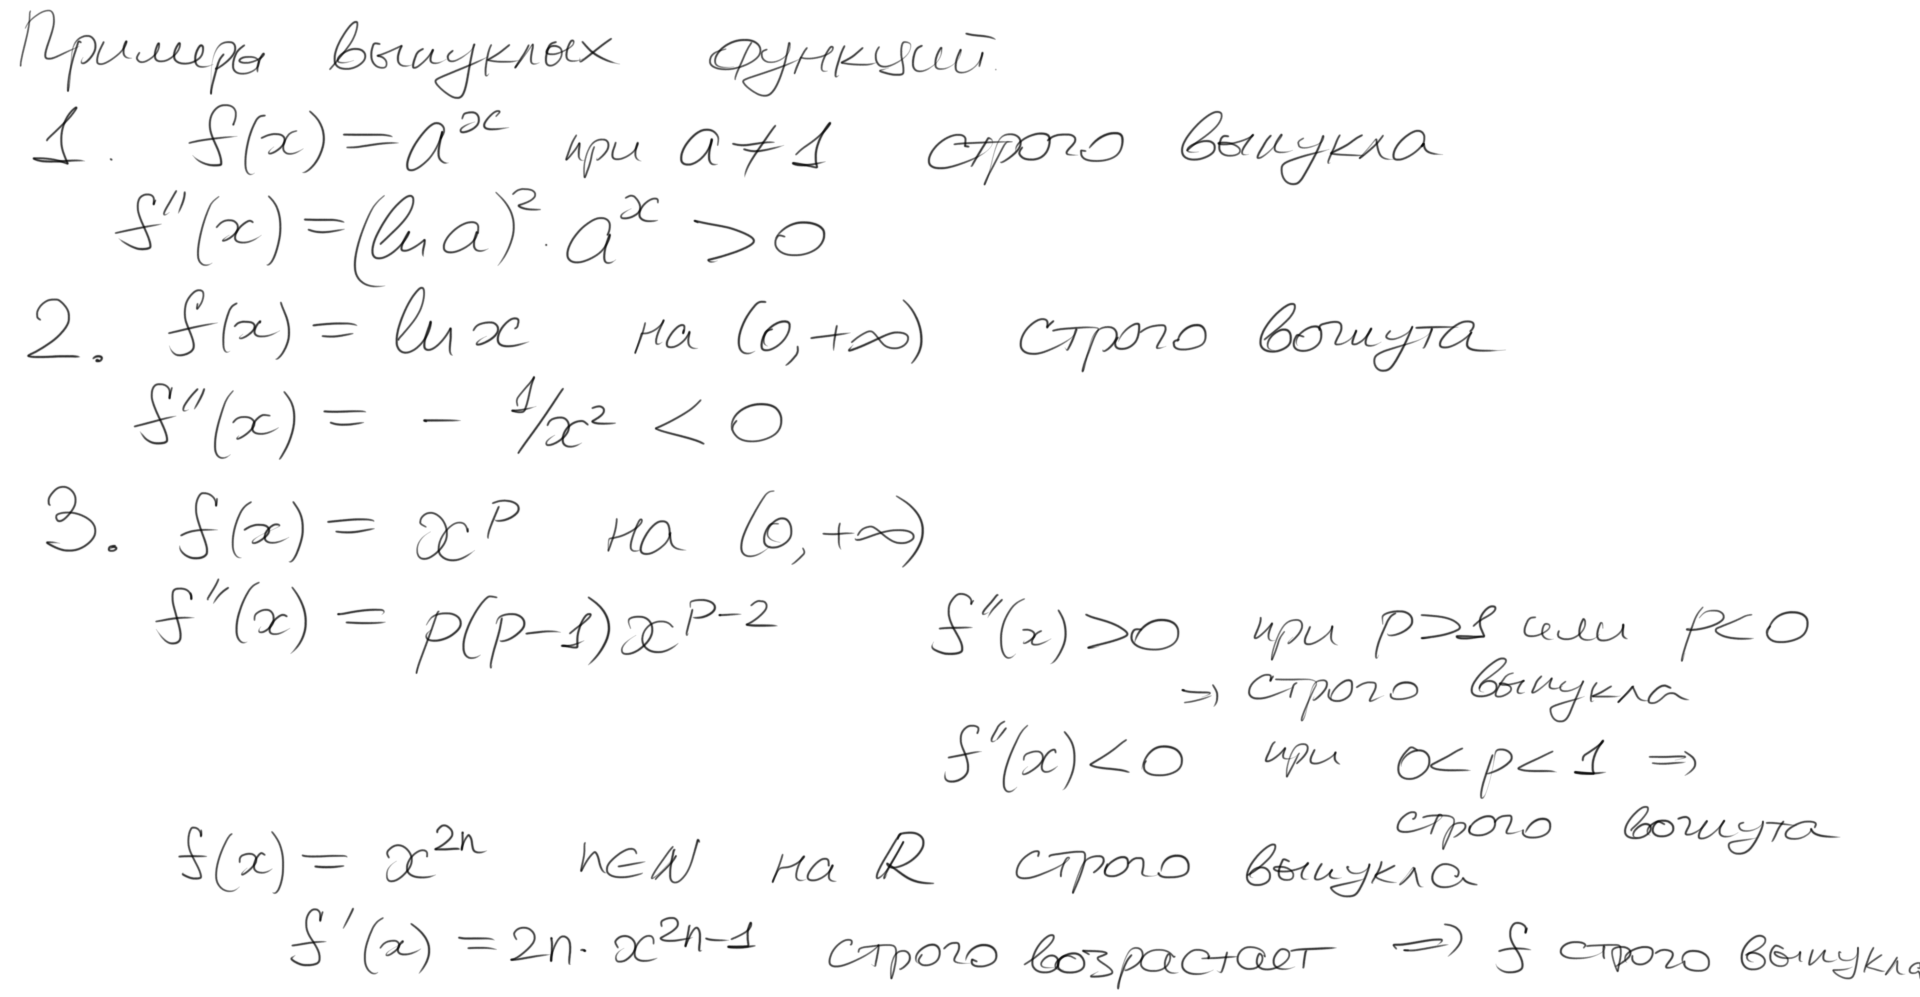 Примеры выпуклых функций.
1. f(x) = a^x при a ≠ 1 строго выпукла
f''(x) = (ln a)^2 · a^x > 0
2. f(x) = ln x на (0, +∞) строго вогнута
f''(x) = - 1/x^2 < 0
3. f(x) = x^p на (0, +∞)
f''(x) = p(p-1)x^{p-2} f''(x) > 0 при p > 1 или p < 0
⇒ строго выпукла
f''(x) < 0 при 0 < p < 1 ⇒
строго вогнута
f(x) = x^{2n} n ∈ ℕ на ℝ строго выпукла
f'(x) = 2n · x^{2n-1} строго возрастает ⇒ f строго выпукла